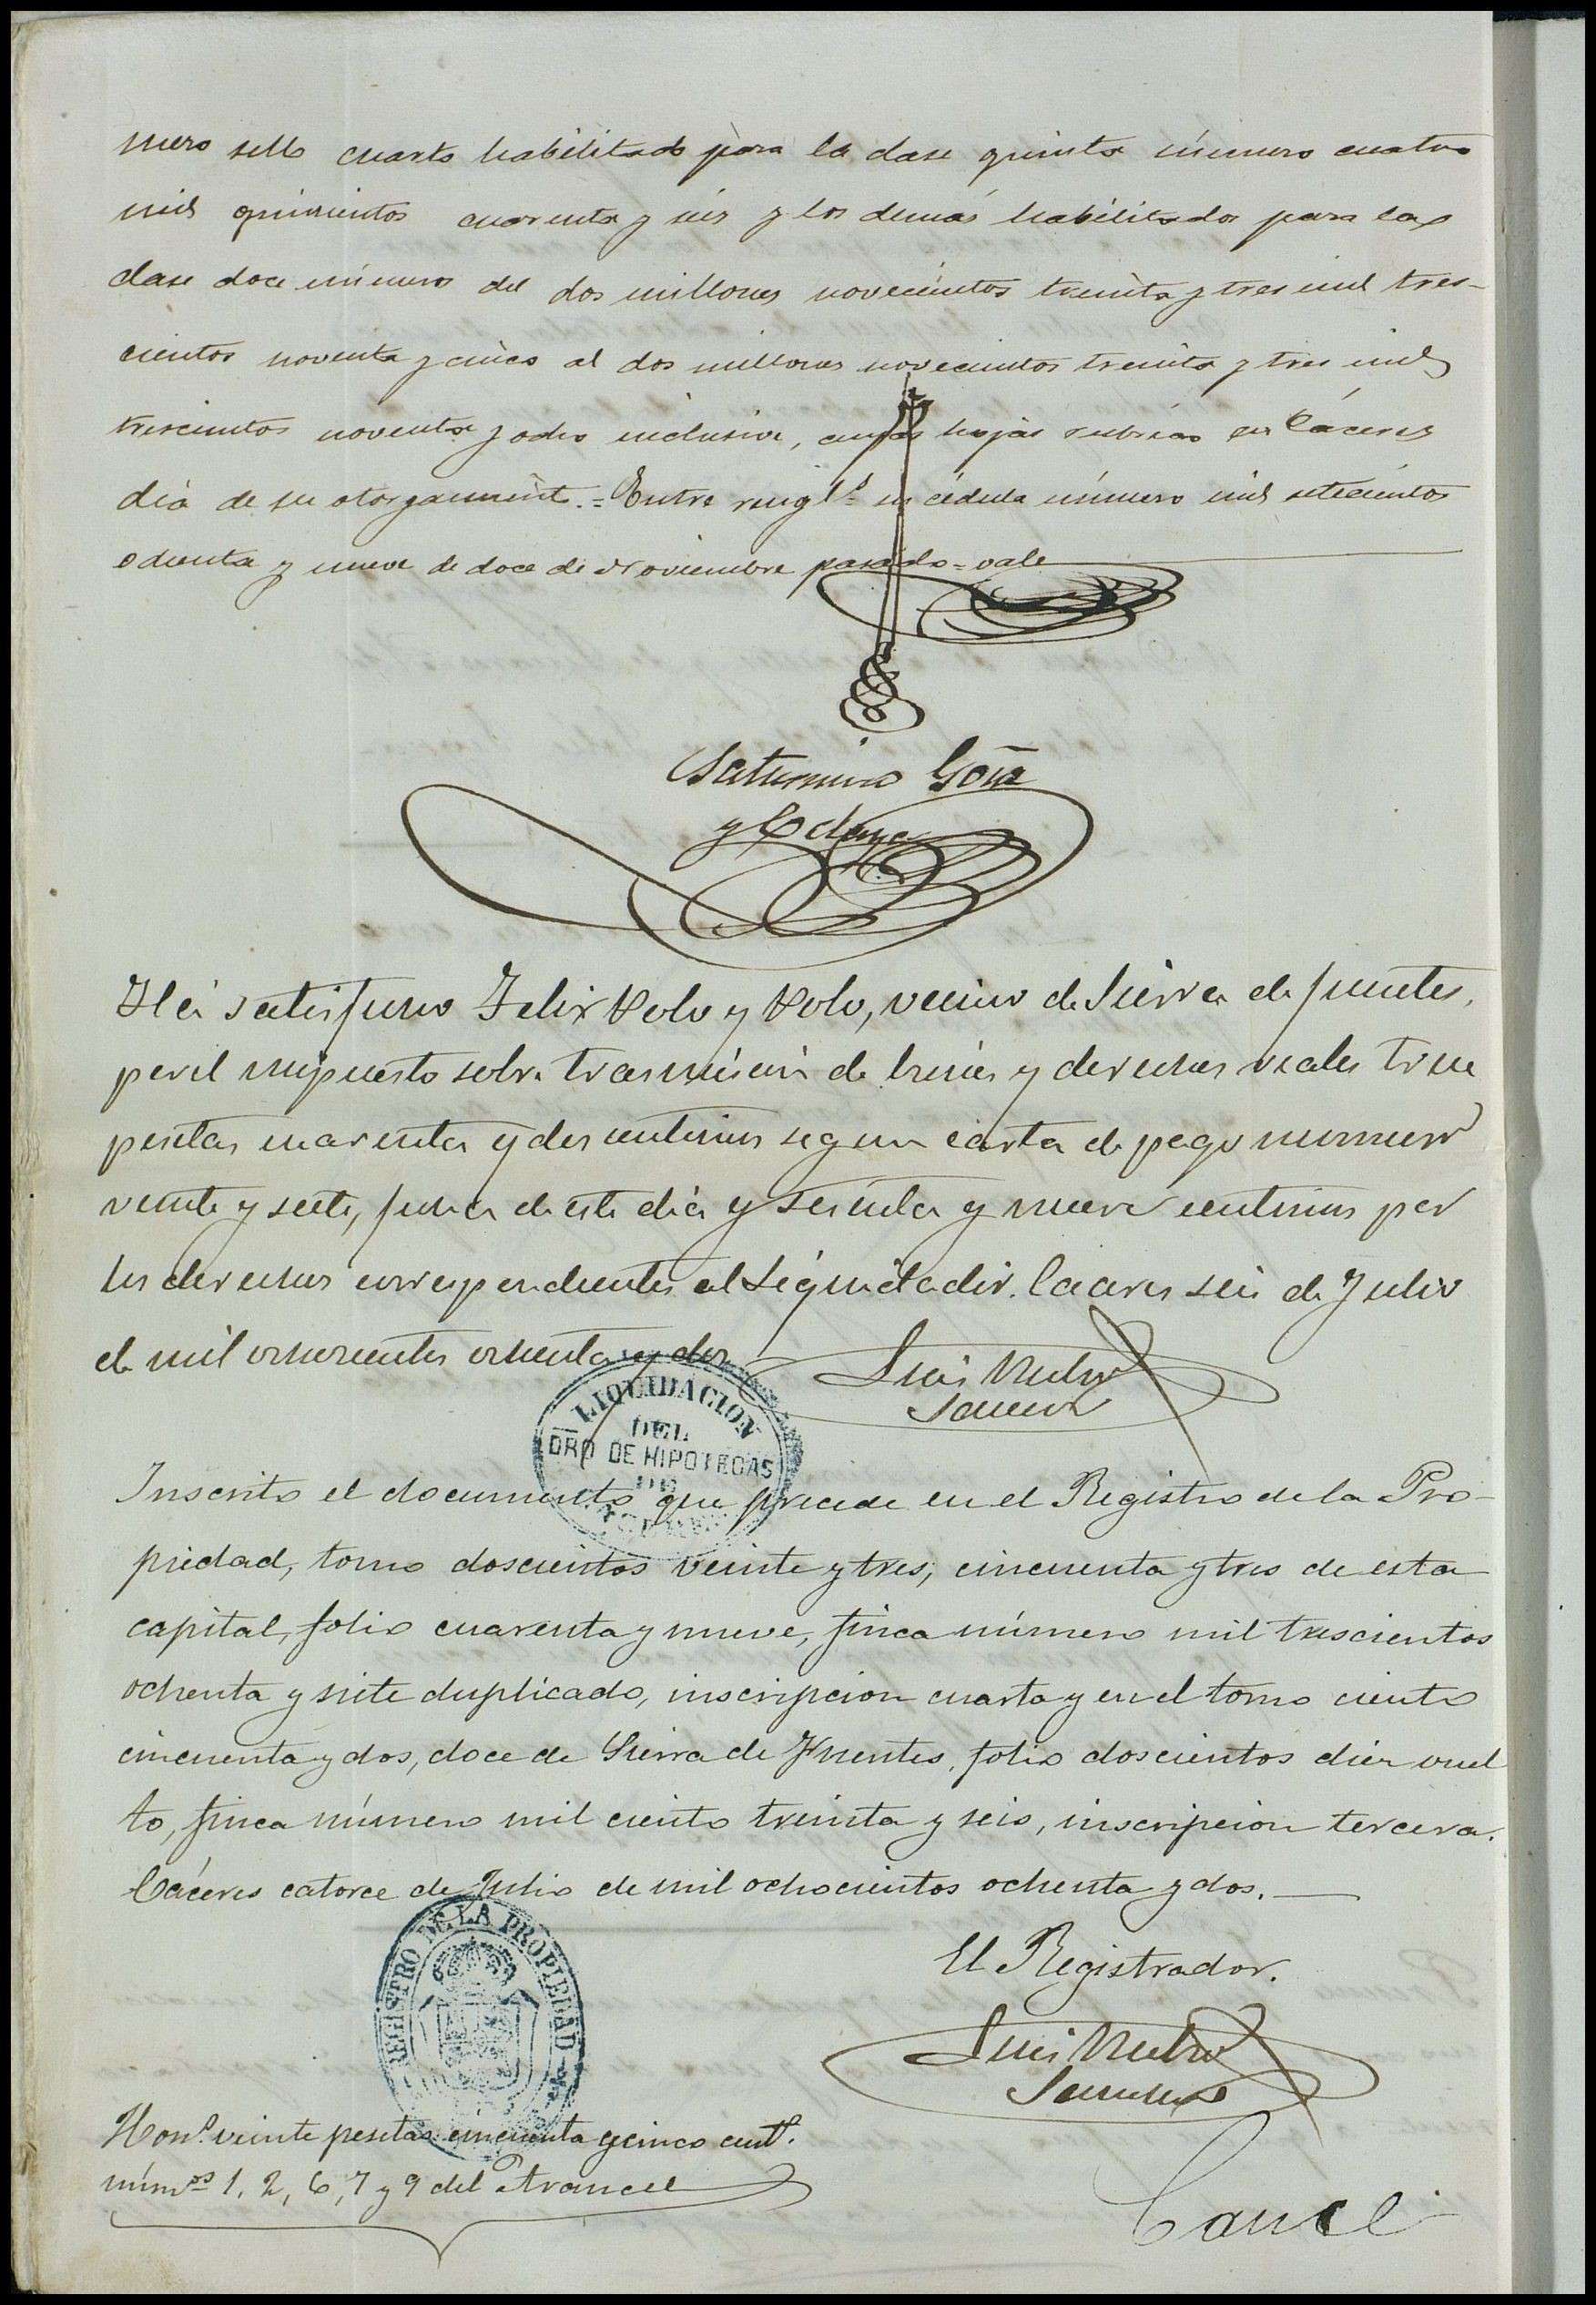 mero sello cuarto habilitado para la clase quinta número cuatro
mil quinientos cuarenta y seis y los demás habilitados para la
clase doce números del dos millones novecientos treinta y tres mil tres-
cientos noventa y cinco al dos millones novecientos treinta y tres mil
trescientos noventa y ocho inclusive, cuyas hojas rubrico en Cáceres
dia de su otorgamiento.= Entre rengls. su cédula número mil setecientos
ochenta y nueve de doce de Noviembre pasado=vale
Saturnino Goñi
y
Há satisfecho Felix Polo y Polo, vecino de Sierra de fuentes,
por el impuesto sobre trasmisión de bienes y derechos reales trece
pesetas cuarenta y dos centimos segun carta de pago numero
veinte y siete, fecha de este día y sesenta y nueve centimos por
los derechos correspondientes al Liquidador. Caceres seis de Julio
de mil ochocientos ochenta y dos
Luis
LIQUIDACION
DEL
DRO DE HIPOTECAS
DE
Inscrito el documento que precede en el Registro de la Pro-
piedad, tomo doscientos veinte y tres, cincuenta y tres de esta
capital, folio cuarenta y nueve, finca número mil trescientos
ochenta y siete duplicado, inscripcion cuarta y en el tomo ciento
cincuenta y dos, doce de Sierra de Fuentes, folio doscientos diez vuel
to, finca número mil ciento treinta y seis, inscripcion tercera.
Cáceres catorce de Julio de mil ochocientos ochenta y dos.
El Registrador.
REGISTRO DE LA PROPIEDAD
Luis
Hons. veinte pesetas cincuenta y cinco cents.
númos 1, 2, 6, 7 y 9 del Arancel